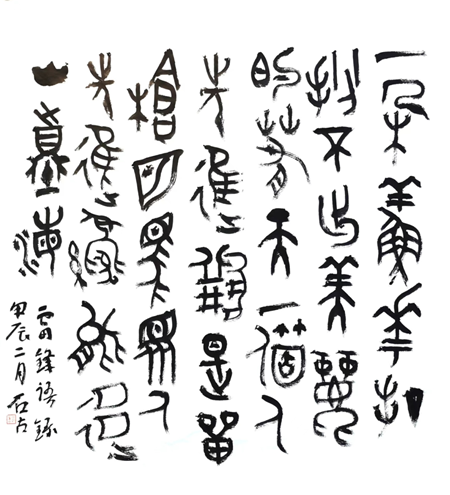 一朵鮮花打
扮不出美麗
的春天一個人
先進總是單
槍匹馬眾人
先進纔能移
山填海
雷鋒語錄
甲辰二月石